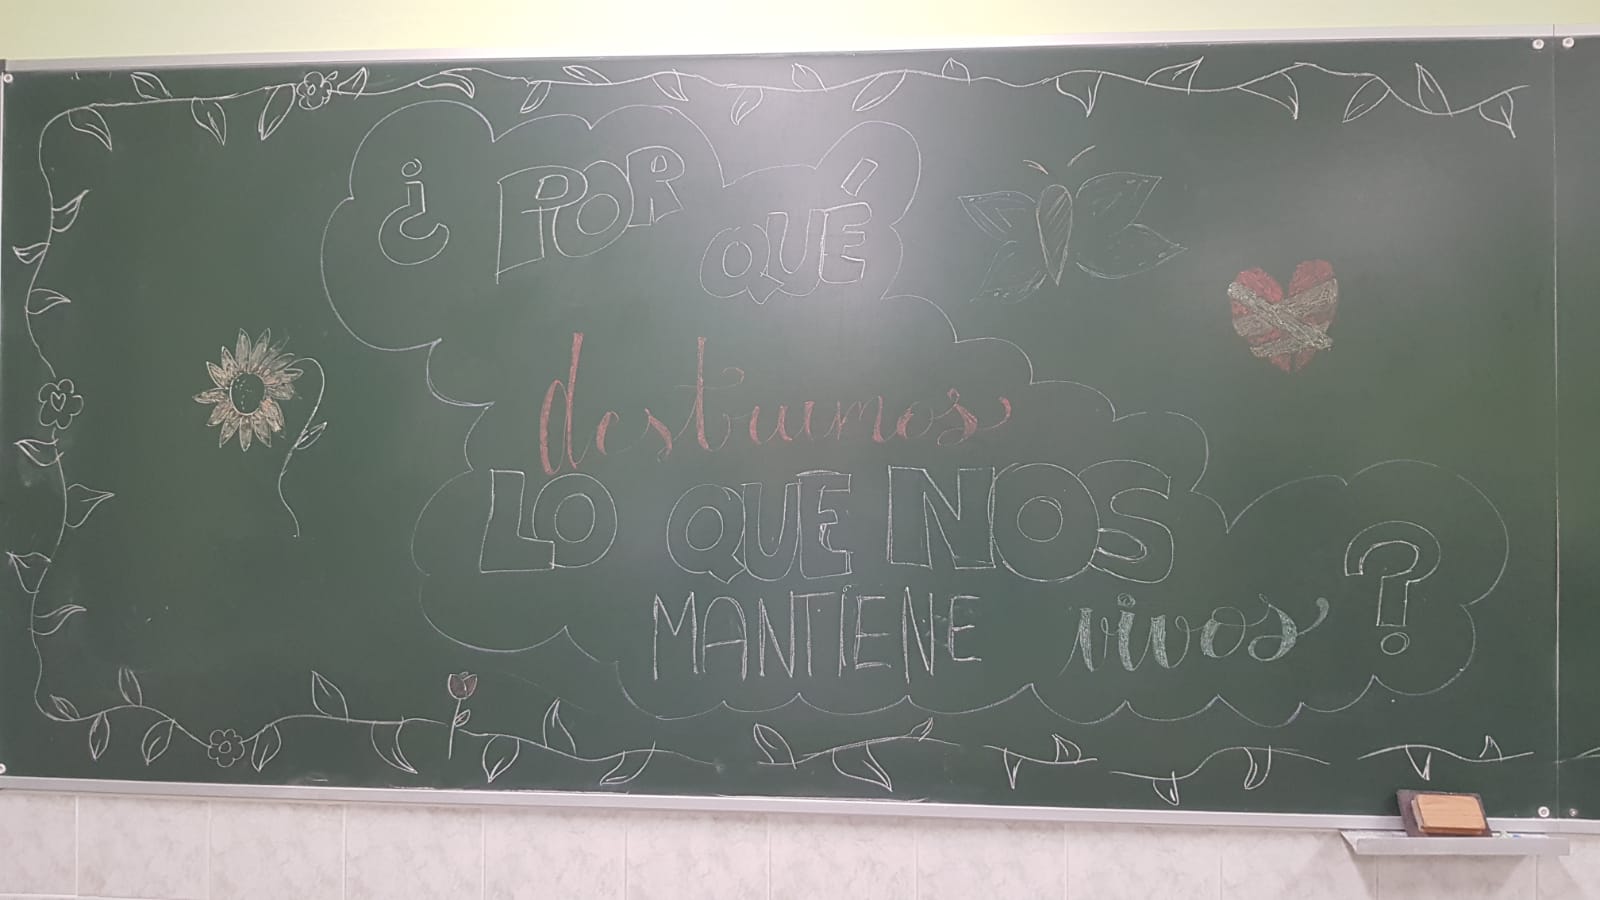 ¿POR QUÉ
destruimos
LO QUE NOS
MANTIENE vivos?